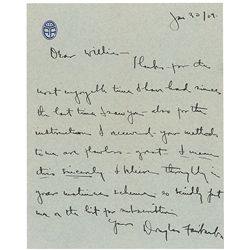 Jan 30/29.
Dear Willie—
Thanks for the
most enjoyable time I have had since
the last time I saw you — also for the
instructions I received your methods
to me are flawless — great. I mean
this sincerely & I believe thoroughly in
your scheme, so kindly put
me on the list for subscription
Yours
Douglas Fairbanks